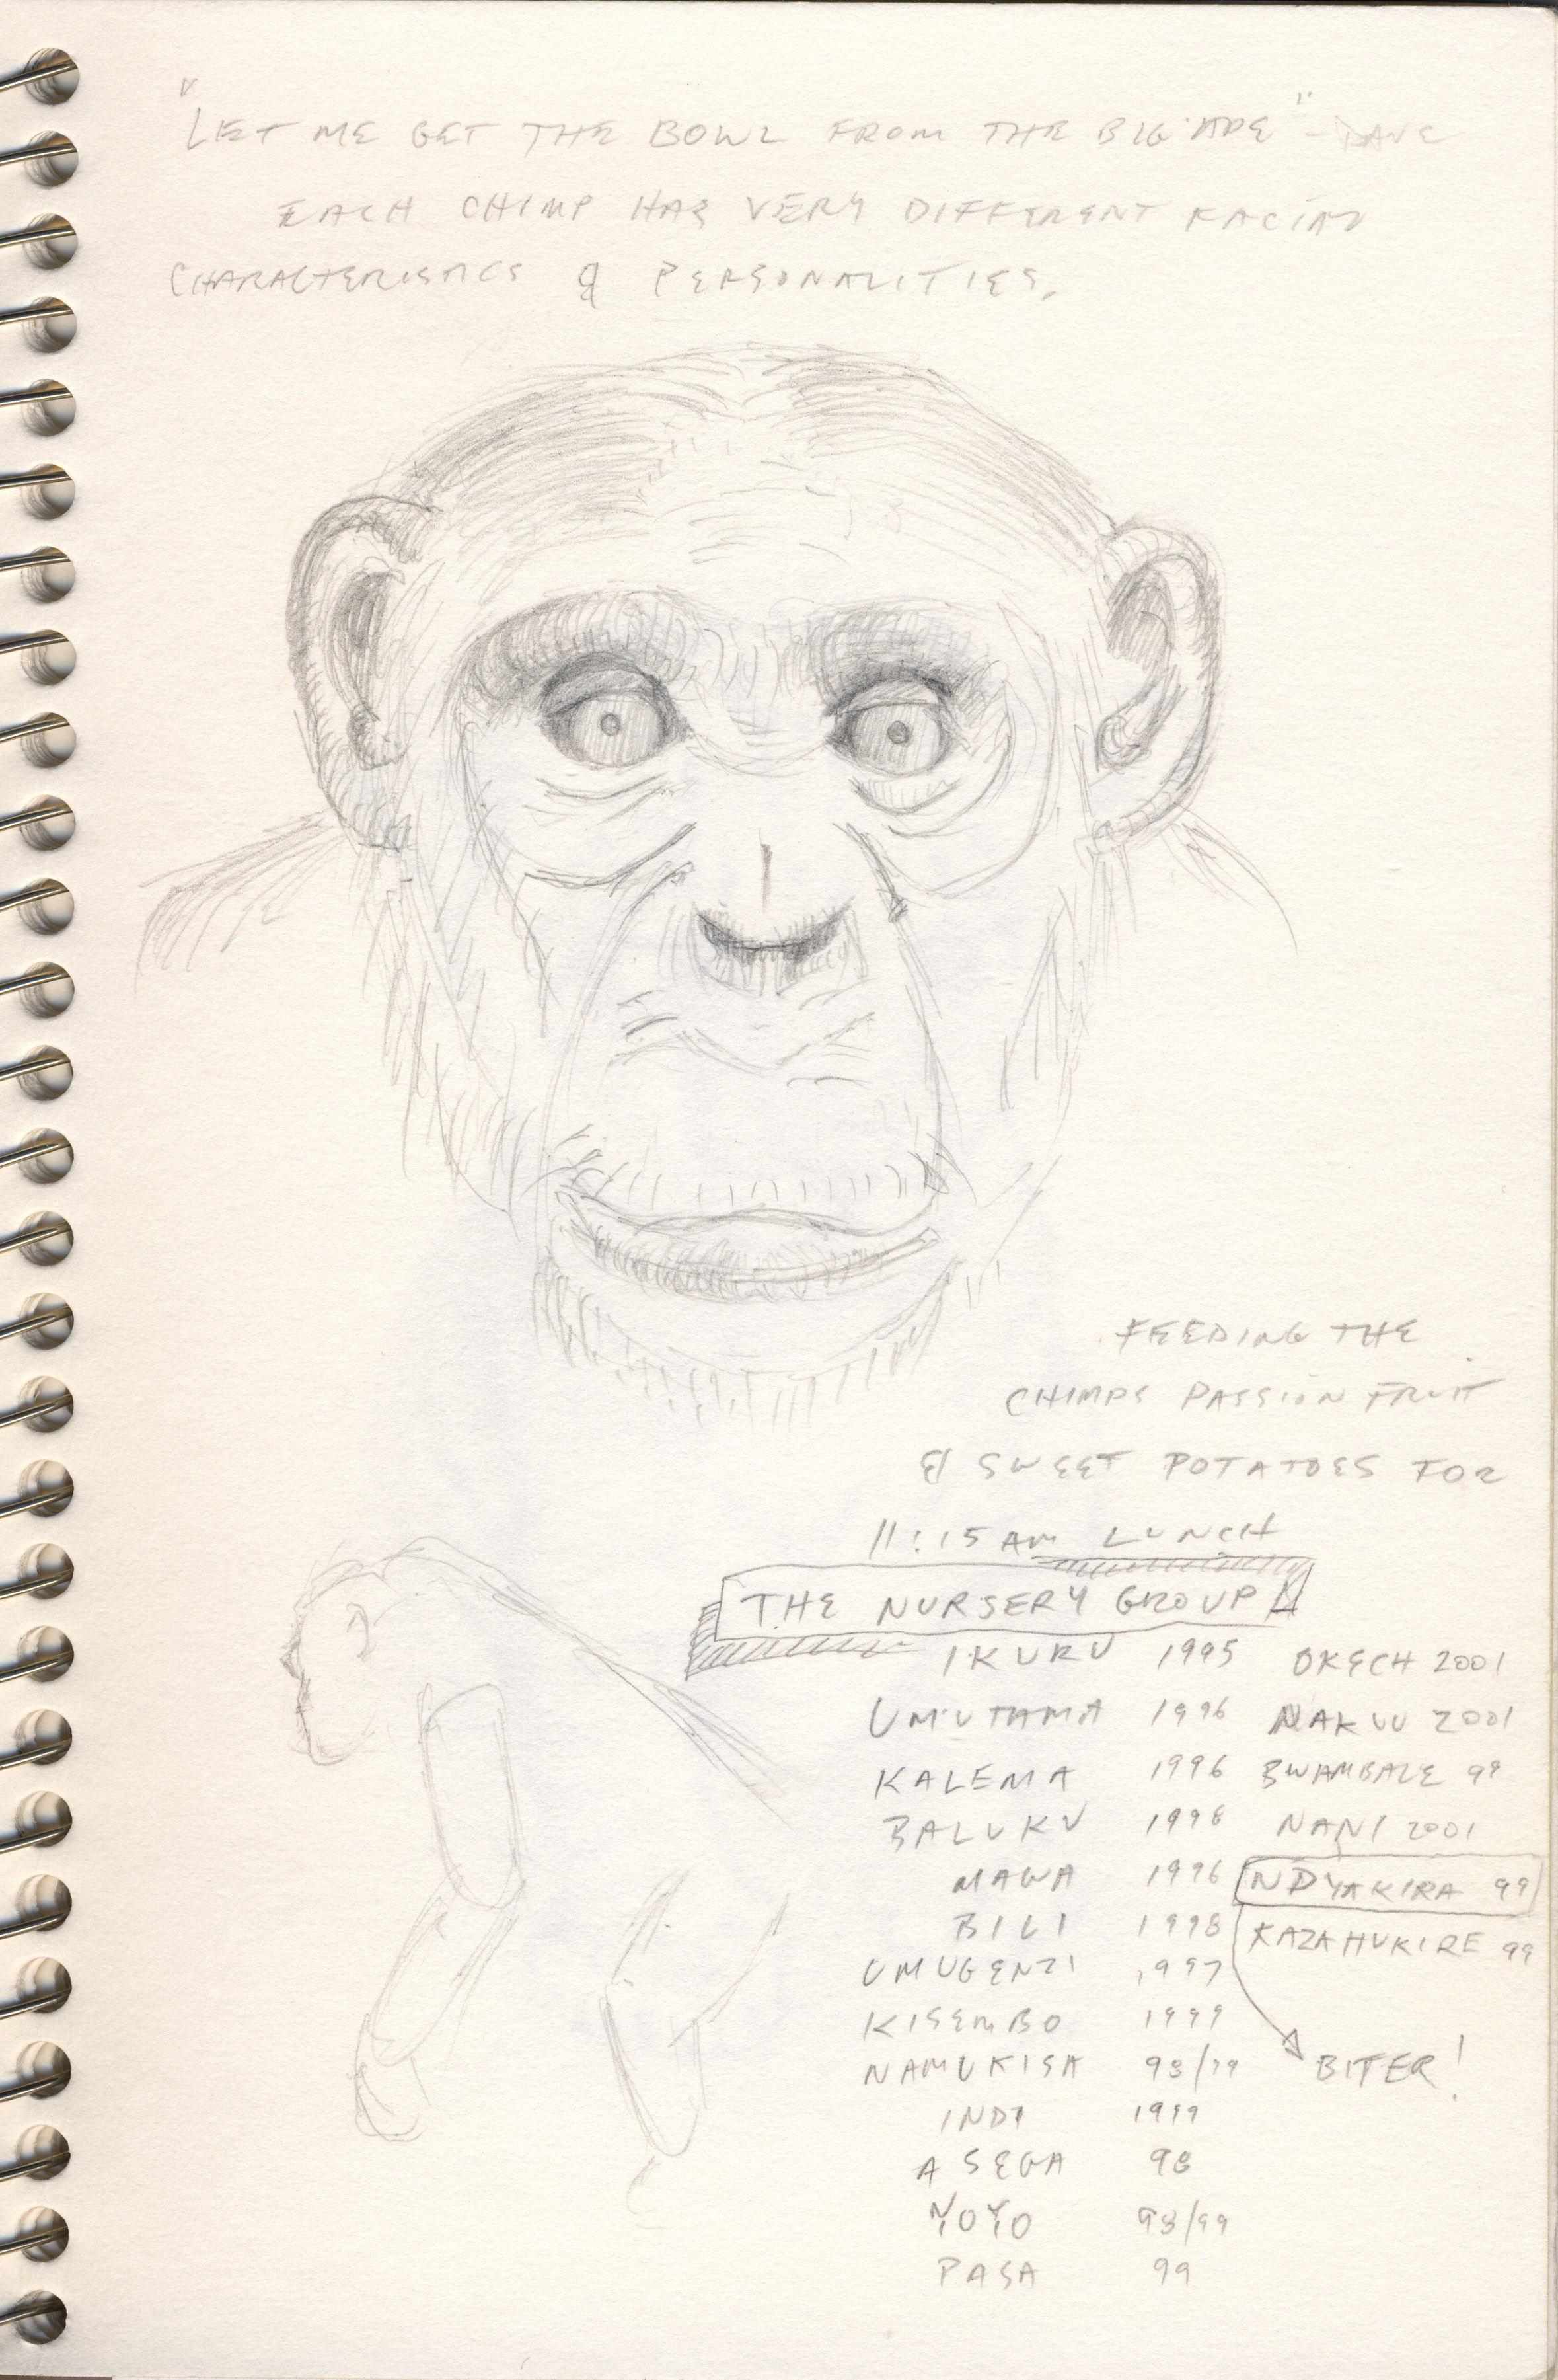 "LET ME GET THE BOWL FROM THE BIG APE" - DAVE
EACH CHIMP HAS VERY DIFFERENT FACIAL
CHARACTERISTICS & PERSONALITIES.
FEEDING THE
CHIMPS PASSION FRUIT
& SWEET POTATOES FOR
11:15 AM LUNCH
THE NURSERY GROUP
IKURU 1995
UMUTAMA 1996
KALEMA 1996
BALUKU 1998
MAWA 1996
BILI 1998
UMUGENZI 1997
KISEMBO 1999
NAMUKISA 98/99
INDI 1999
ASEGA 98
YOYO 98/99
PASA 99
OKECH 2001
NAKUU 2001
BWAMBALE 99
NANI 2001
NDYAKIRA 99
KAZAHUKIRE 99
BITER!